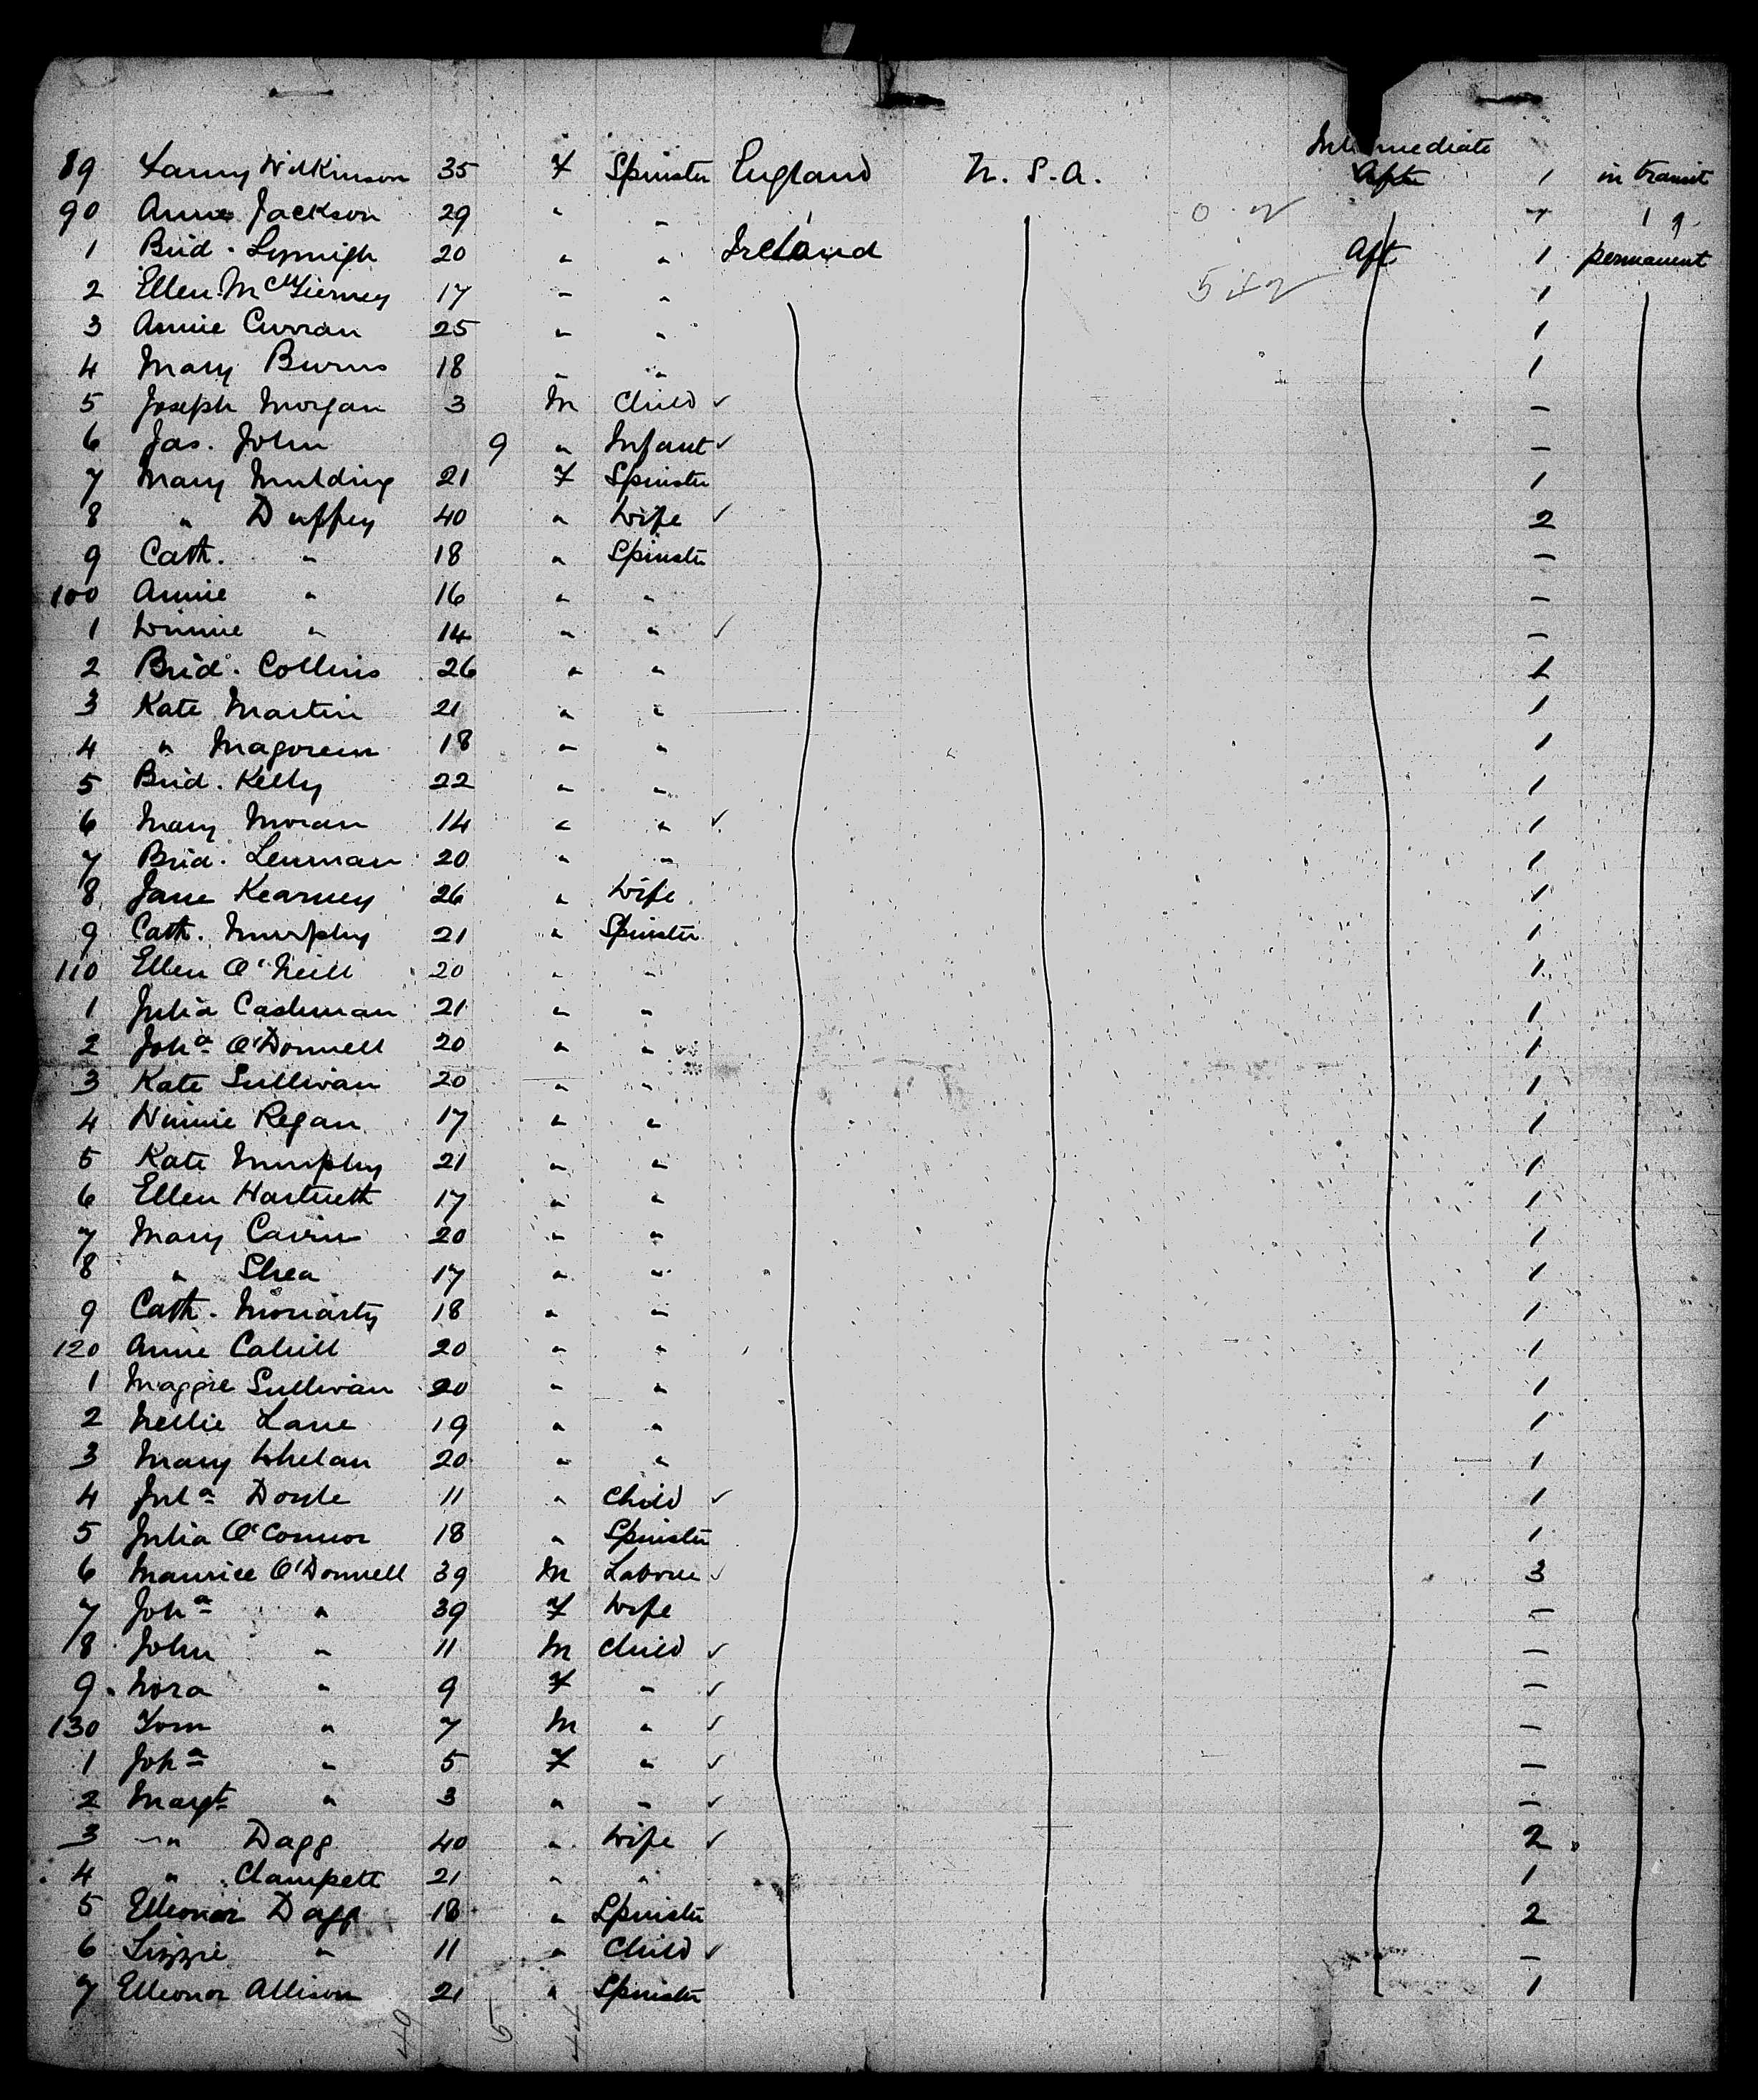 Intermediate
89 Fanny Wilkinson 35 F Spinster England U.S.A. Aft 1 in transit
90 Annie Jackson 29 " " 1 "
1 Brid. 20 " " Ireland Aft 1 permanent
2 Ellen McTierney 17 " " 1
3 Annie Curran 25 " " 1
4 Mary Burns 18 " " 1
5 Joseph Morgan 3 M Child ✓ –
6 Jas. John 9 " Infant ✓ –
7 Mary Mulding 21 F Spinster 1
8 " Duffey 40 " Wife ✓ 2
9 Cath. " 18 " Spinster –
100 Annie " 16 " " –
1 Winnie " 14 " " ✓ –
2 Brid. Collins 26 " " 1
3 Kate Martin 21 " " 1
4 " Magorem 18 " " 1
5 Brid. Kelly 22 " " 1
6 Mary Moran 14 " " ✓ 1
7 Brid. Lennan 20 " " 1
8 Jane Kearney 26 " Wife 1
9 Cath. Murphy 21 " Spinster 1
110 Ellen O'Neill 20 " " 1
1 Julia Cashman 21 " " 1
2 Joha O'Donnell 20 " " 1
3 Kate Sullivan 20 " " 1
4 Winnie Regan 17 " " 1
5 Kate Murphy 21 " " 1
6 Ellen Hartnett 17 " " 1
7 Mary 20 " " 1
8 " Shea 17 " " 1
9 Cath. Moriarty 18 " " 1
120 Annie Cahill 20 " " 1
1 Maggie Sullivan 20 " " 1
2 Nellie Lane 19 " " 1
3 Mary Whelan 20 " " 1
4 Jula Doyle 11 " Child ✓ 1
5 Julia O'Connor 18 " Spinster 1
6 Maurice O'Donnell 39 M Laborer ✓ 3
7 Joha " 39 F Wife –
8 John " 11 M Child ✓ –
9 Nora " 9 F " ✓ –
130 Tom " 7 M " ✓ –
1 Joha " 5 F " ✓ –
2 Margt " 3 " " ✓ –
3 " Dagg 40 " Wife ✓ 2
4 " Clampett 21 " " 1
5 Elleonor Dagg 18 " Spinster 2
6 Lizzie " 11 " Child ✓ –
7 Elleonor Allison 21 " Spinster 1
49 5 44